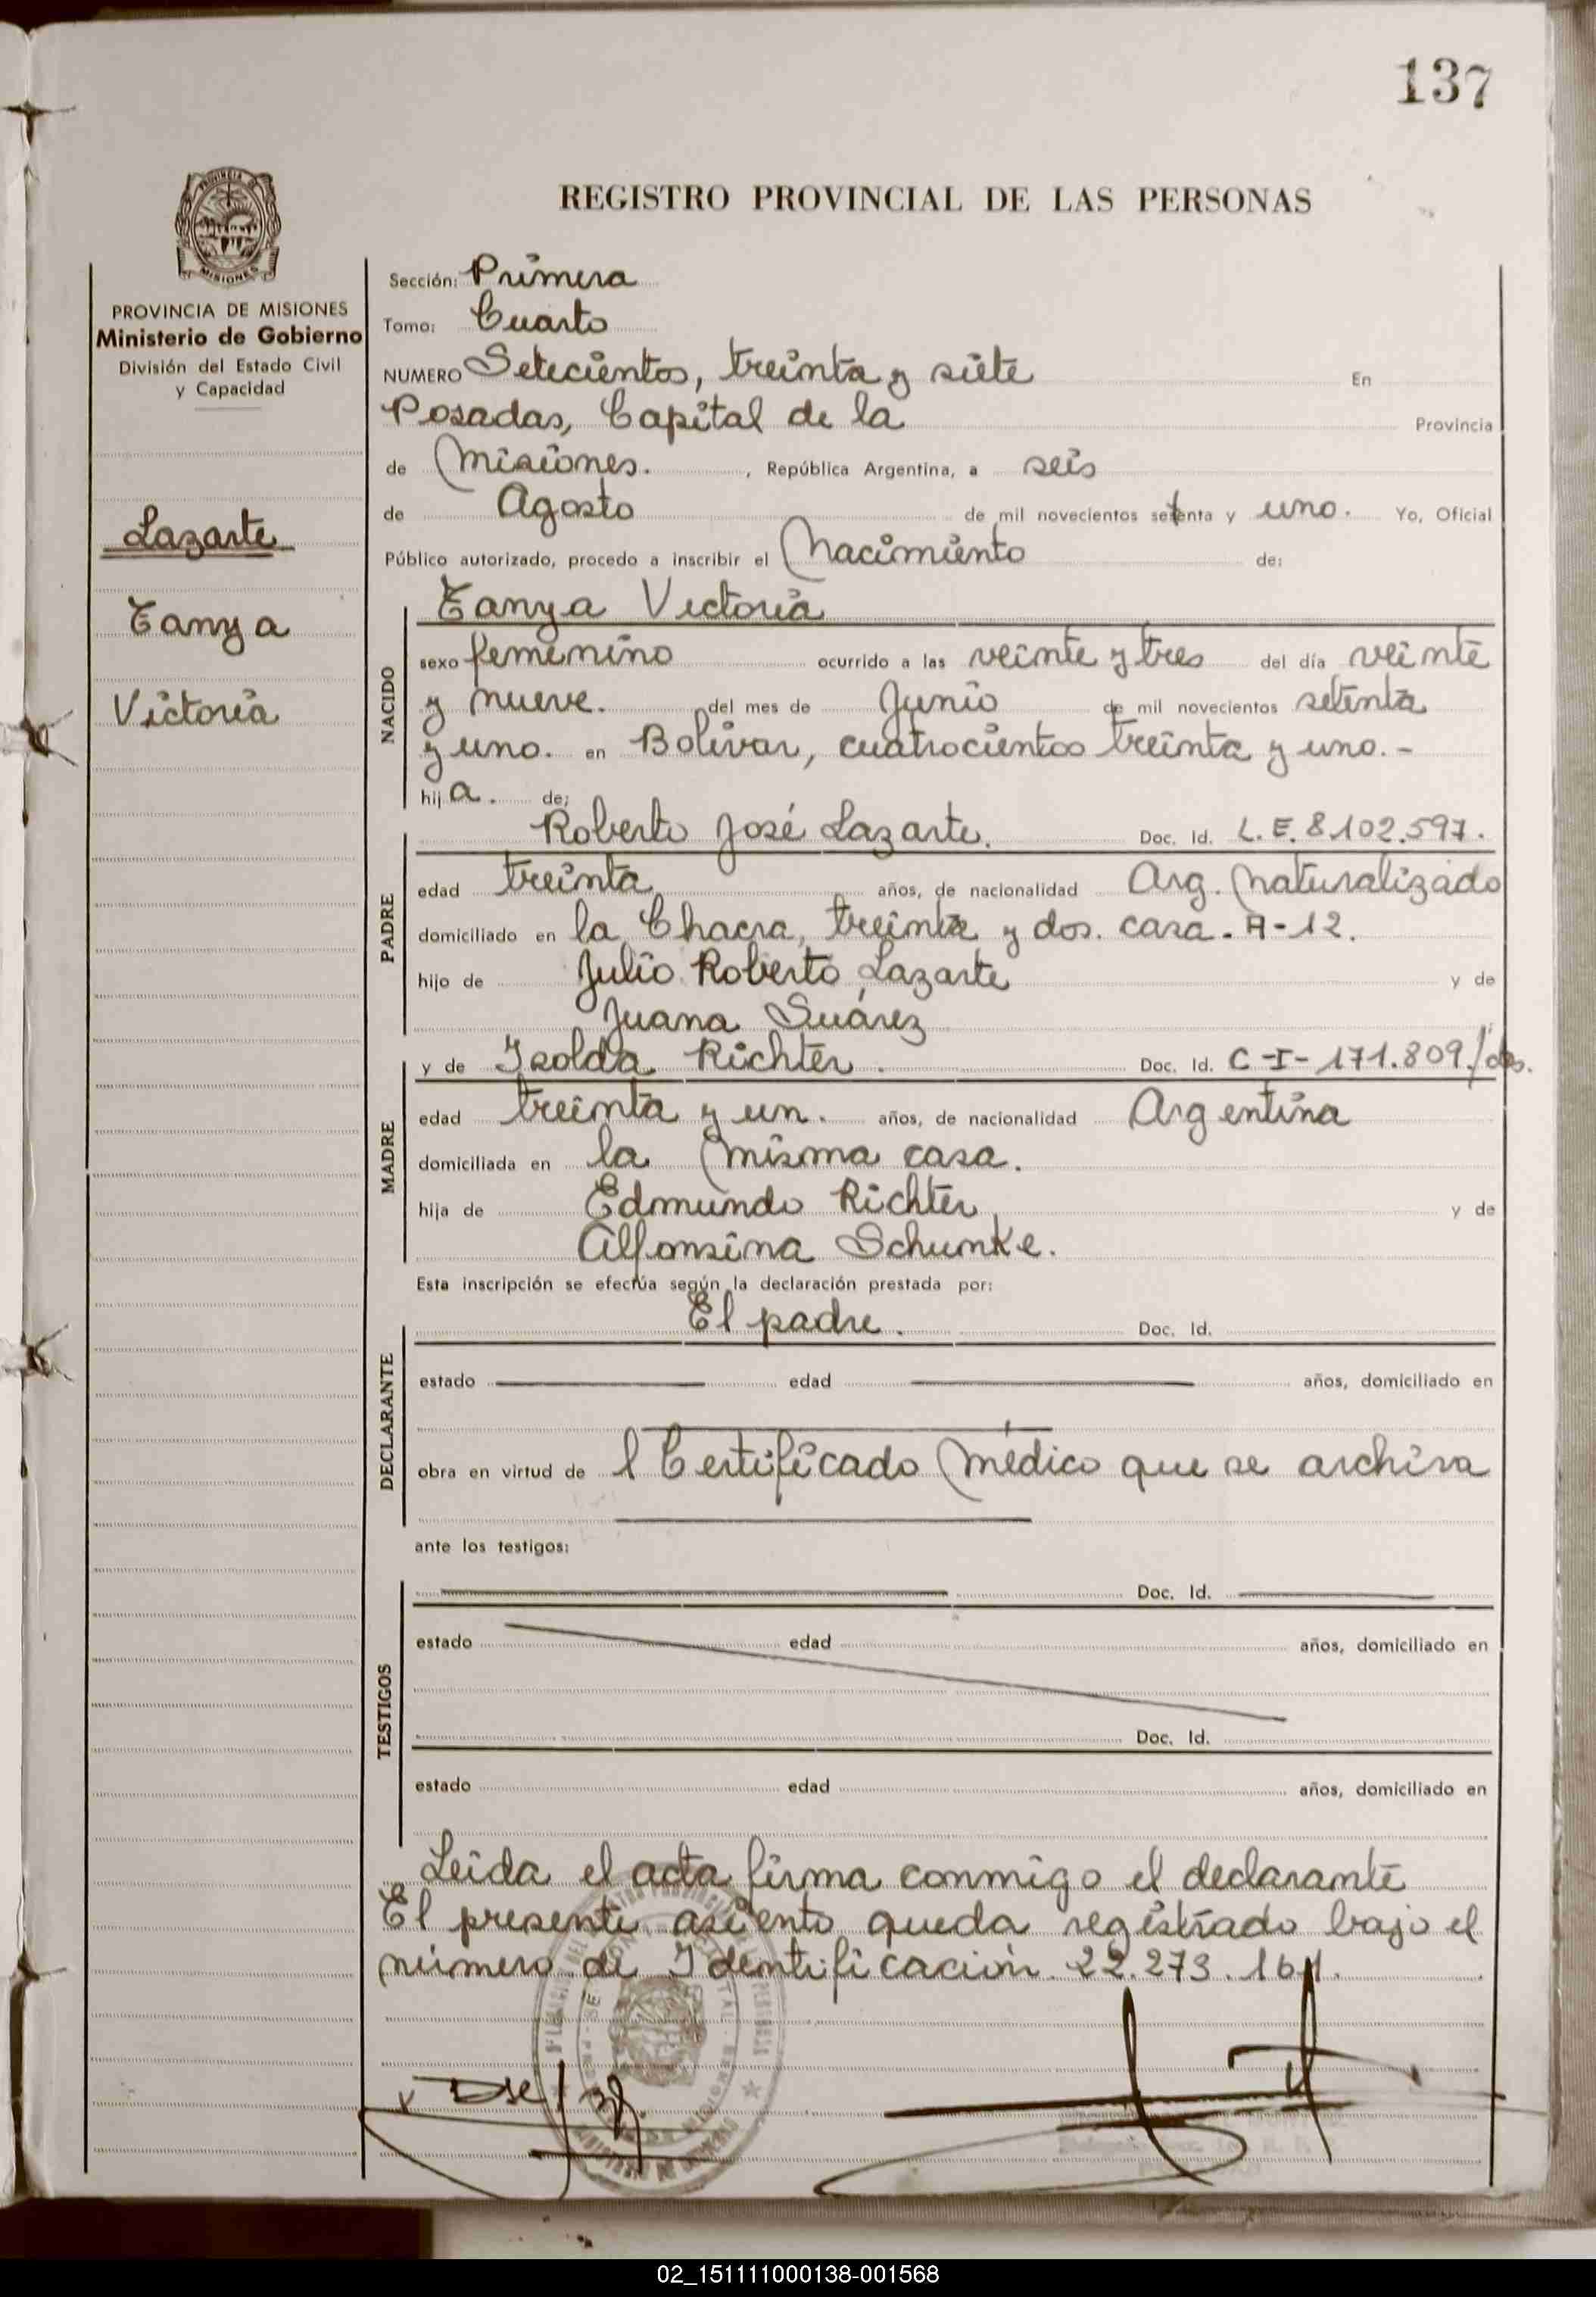 137
REGISTRO PROVINCIAL DE LAS PERSONAS
PROVINCIA DE MISIONES
Ministerio de Gobierno
División del Estado Civil
y Capacidad
Lazarte
Tanya
Victoria
Sección: Primera
Tomo: Cuarto
NUMERO Setecientos, treinta y siete En
Posadas, Capital de la Provincia
de Misiones. , República Argentina, a seis
de Agosto de mil novecientos setenta y uno. Yo, Oficial
Público autorizado, procedo a inscribir el Nacimiento de:
NACIDO
Tanya Victoria
sexo femenino ocurrido a las veinte y tres del día veinte
y nueve. del mes de Junio de mil novecientos setenta
y uno. en Bolívar, cuatrocientos treinta y uno.-
hija. de:
PADRE
Roberto José Lazarte. Doc. Id. L.E. 8.102.597.
edad treinta años, de nacionalidad Arg. Naturalizado
domiciliado en la Chacra, treinta y dos. casa. A-12.
hijo de Julio Roberto Lazarte y de
Juana Suárez
MADRE
y de Isolda Richter. Doc. Id. C-I-171.809./
edad treinta y un. años, de nacionalidad Argentina
domiciliada en la misma casa.
hija de Edmundo Richter y de
Alfonsina Schunke.
Esta inscripción se efectúa según la declaración prestada por:
DECLARANTE
El padre. Doc. Id.
estado edad años, domiciliado en
obra en virtud de l Certificado Médico que se archiva
ante los testigos:
TESTIGOS
Doc. Id.
estado edad años, domiciliado en
Doc. Id.
estado edad años, domiciliado en
Leída el acta firma conmigo el declarante
El presente asiento queda registrado bajo el
número de Identificación 22.273.161.
02_151111000138-001568